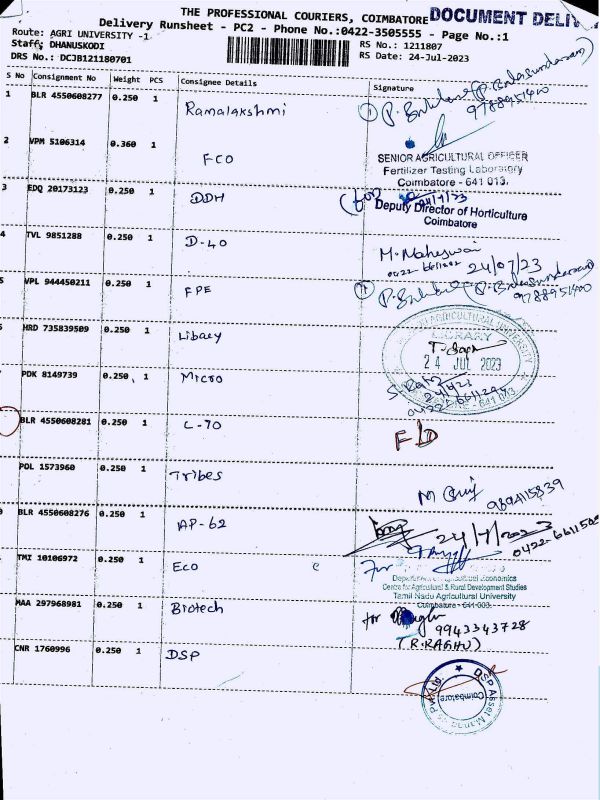 THE PROFESSIONAL COURIERS, COIMBATORE DOCUMENT DELIV
Delivery Runsheet - PC2 - Phone No.:0422-3505555 - Page No.:1
Route: AGRI UNIVERSITY -1
Staff: DHANUSKODI
DRS No.: DCJB121180701
RS No.: 1211807
RS Date: 24-Jul-2023
S No Consignment No Weight PCS Consignee Details Signature
1 BLR 4550608277 0.250 1 Ramalakshmi
9788951400
2 VPM 5106314 0.360 1 FCO
SENIOR AGRICULTURAL OFFICER
Fertilizer Testing Laboratory
Coimbatore - 641 013.
3 EDQ 20173123 0.250 1 DDH (for)
Deputy Director of Horticulture
Coimbatore
4 TVL 9851288 0.250 1 D-40 M. Maheswari
24/07/23
5 VPL 944450211 0.250 1 FPE
9788951400
HRD 735839509 0.250 1 Libary
AGRICULTURAL UNIVERSITY
LIBRARY
24 JUL 2023
641 003
PDK 8149739 0.250 1 Micro
BLR 4550608281 0.250 1 L-70
POL 1573960 0.250 1 Tribes
9894115839
BLR 4550608276 0.250 1 AP-62
24/7/2023
TMI 10106972 0.250 1 Eco e For
Centre for Agricultural & Rural Development Studies
Tamil Nadu Agricultural University
MAA 297968981 0.250 1 Biotech for
9943343728
(R. RAGHU)
CNR 1760996 0.250 1 DSP
DSP Asset
Coimbatore